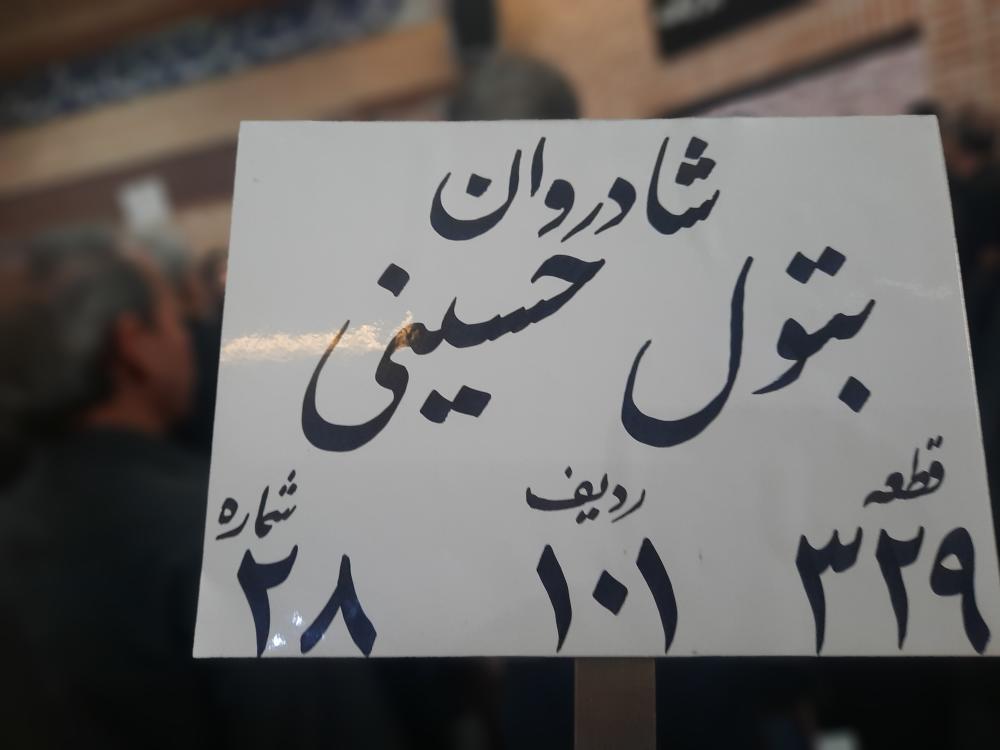 شادروان
بتول حسینی
قطعه ردیف شماره
۳۲۹ ۱۰۱ ۲۸